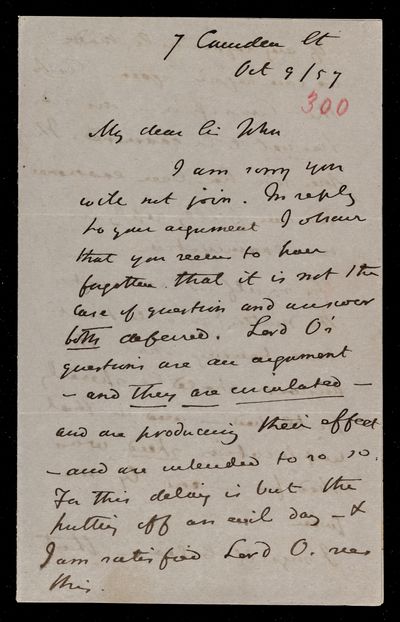 7 Camden St
Oct 9/57
300
My dear Sir John
I am sorry you
will not join. In reply
to your argument I observe
that you seem to have
forgotten that it is not the
case of question and answer
both deferred. Lord O's
questions are an argument
- and they are circulated -
and are producing their effect
- and are intended to do so.
For this delay is but the
putting off an evil day - &
I am satisfied Lord O. sees
this.